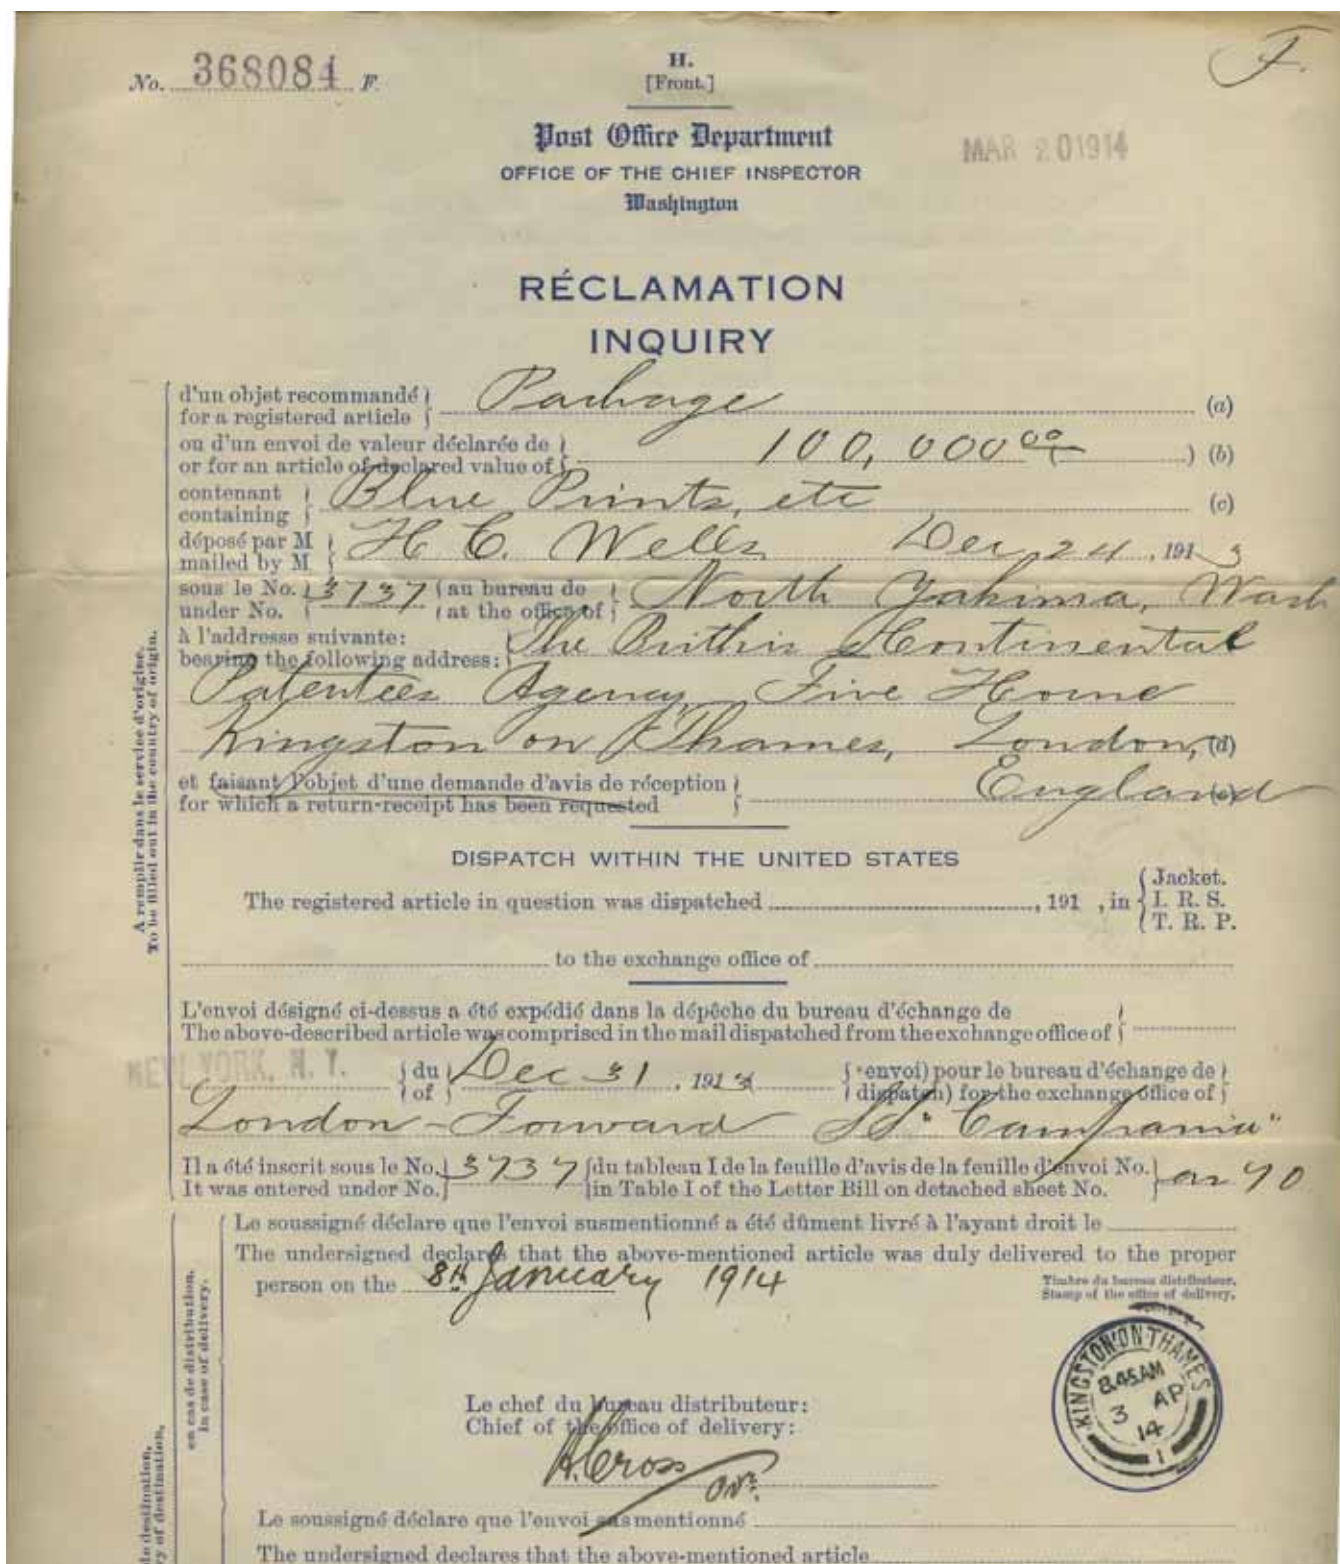 No. 368084 F.
H.
[Front.]
F.
Post Office Department
OFFICE OF THE CHIEF INSPECTOR
Washington
MAR 20 1914
RÉCLAMATION
INQUIRY
d'un objet recommandé
for a registered article Package (a)
ou d'un envoi de valeur déclarée de
or for an article of declared value of 100,000 00 ) (b)
contenant
containing Blue Prints, etc (c)
déposé par M
mailed by M H C. Wells Dec 24, 1913
sous le No.
under No. 3737 au bureau de
at the office of North Yakima, Wash
à l'addresse suivante:
bearing the following address: The Brithis Continental
Patentees Agency, Five Home
Kingston on Thames, London, (d)
et faisant l'objet d'une demande d'avis de réception
for which a return-receipt has been requested England (e)
DISPATCH WITHIN THE UNITED STATES
The registered article in question was dispatched , 191 , in Jacket.
I. R. S.
T. R. P.
to the exchange office of
L'envoi désigné ci-dessus a été expédié dans la dépêche du bureau d'échange de
The above-described article was comprised in the mail dispatched from the exchange office of
NEW YORK, N. Y. du
of Dec 31, 1913 envoi) pour le bureau d'échange de
dispatch) for the exchange office of
London - Forward SS "Campania"
Il a été inscrit sous le No.
It was entered under No. 3737 du tableau I de la feuille d'avis de la feuille d'envoi No.
in Table I of the Letter Bill on detached sheet No. 90
Le soussigné déclare que l'envoi susmentionné a été dûment livré à l'ayant droit le
The undersigned declares that the above-mentioned article was duly delivered to the proper
person on the 8th January 1914
Timbre du bureau distributeur.
Stamp of the office of delivery.
KINGSTON ON THAMES
8.45 AM
3 AP
14
1
Le chef du bureau distributeur:
Chief of the office of delivery:
A. Cross
Le soussigné déclare que l'envoi susmentionné
The undersigned declares that the above-mentioned article
A remplir dans le service d'origine.
To be filled out in the country of origin.
en cas de distribution.
In case of delivery.
de destination,
ry of destination,